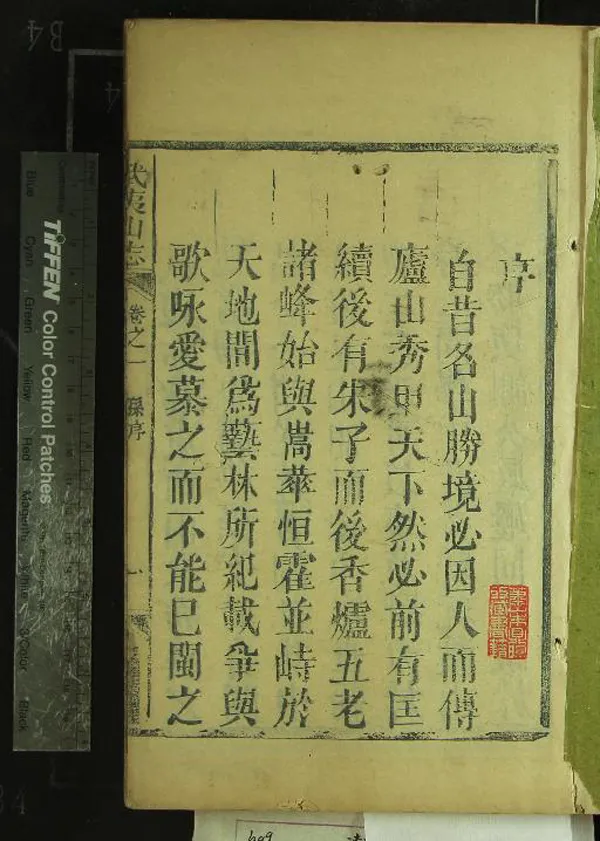 序
自昔名山勝境必因人而傳
廬山秀甲天下然必前有匡
續後有朱子而後香爐五老
諸峰始與嵩華恒霍並峙於
天地間為藝林所紀載爭與
歌咏愛慕之而不能已閩之
武夷山志
卷之一
孫序
一
TIFFEN Color Control Patches
Blue
Cyan
Green
Yellow
Red
Magenta
3-Color
Black